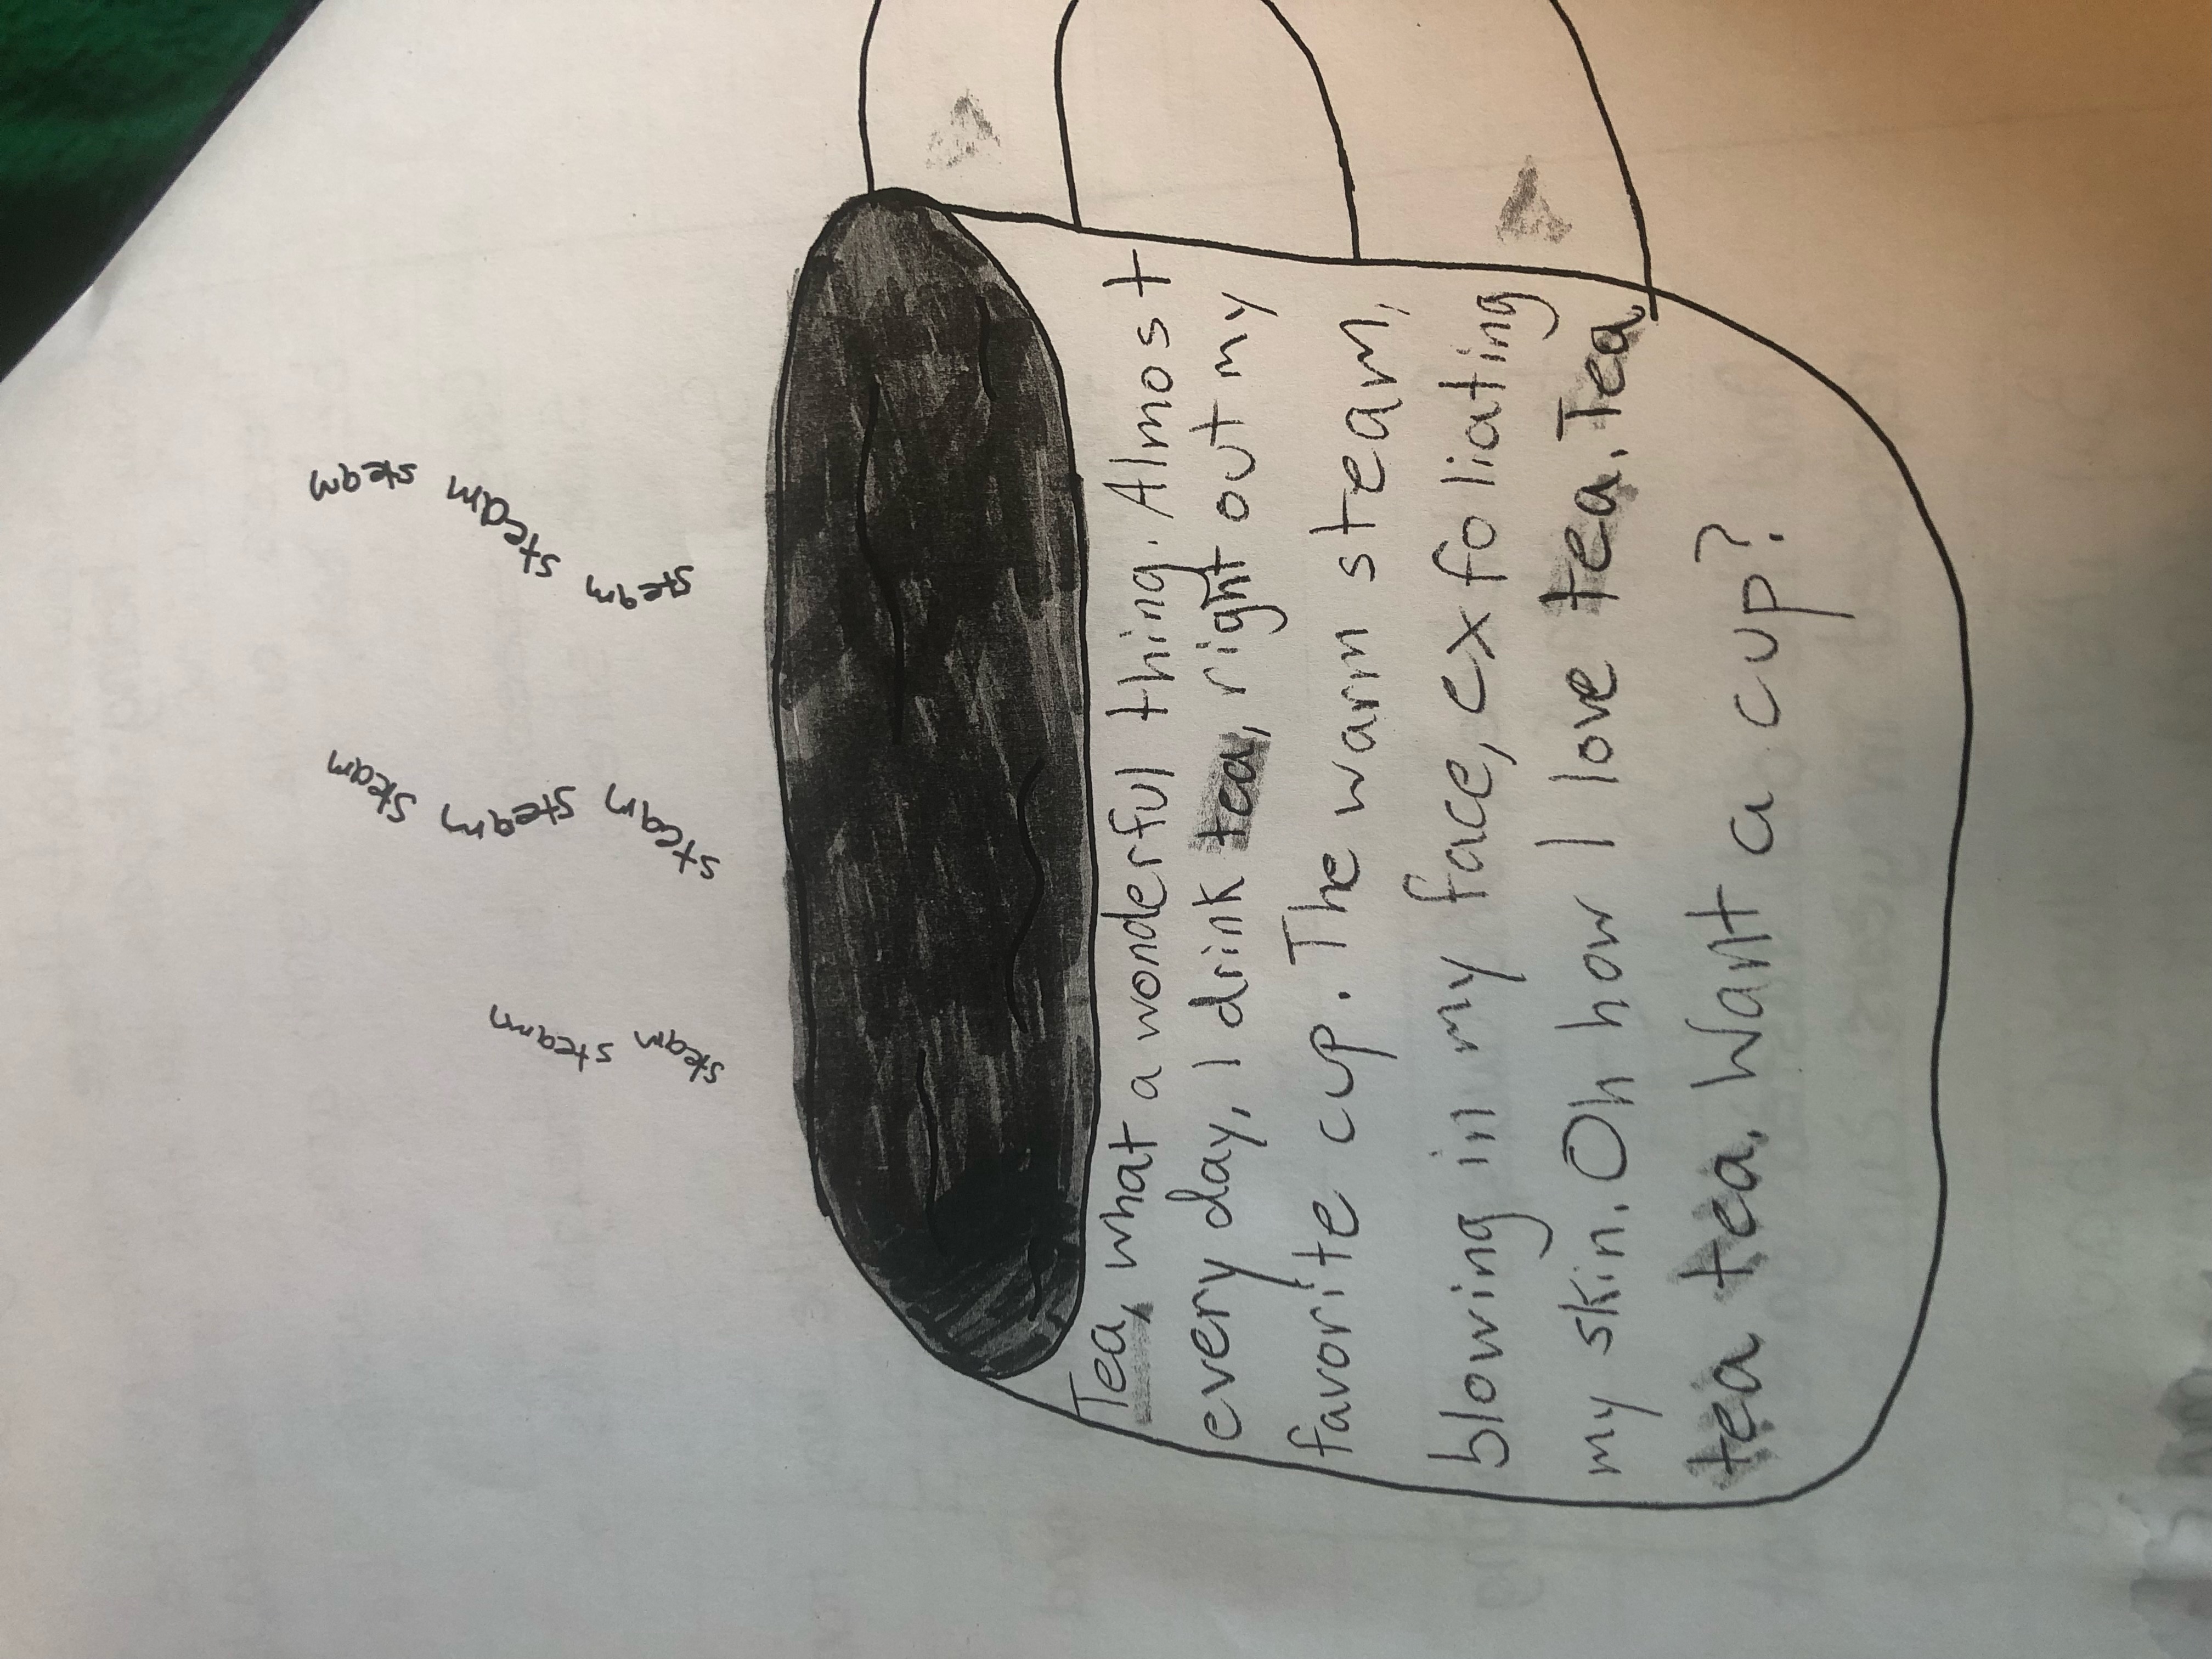 steam steam steam
steam steam steam
steam steam
Tea, what a wonderful thing. Almost
every day, I drink tea, right out my
favorite cup. The warm steam,
blowing in my face, exfoliating
my skin. Oh how I love tea. Tea
tea tea. Want a cup?